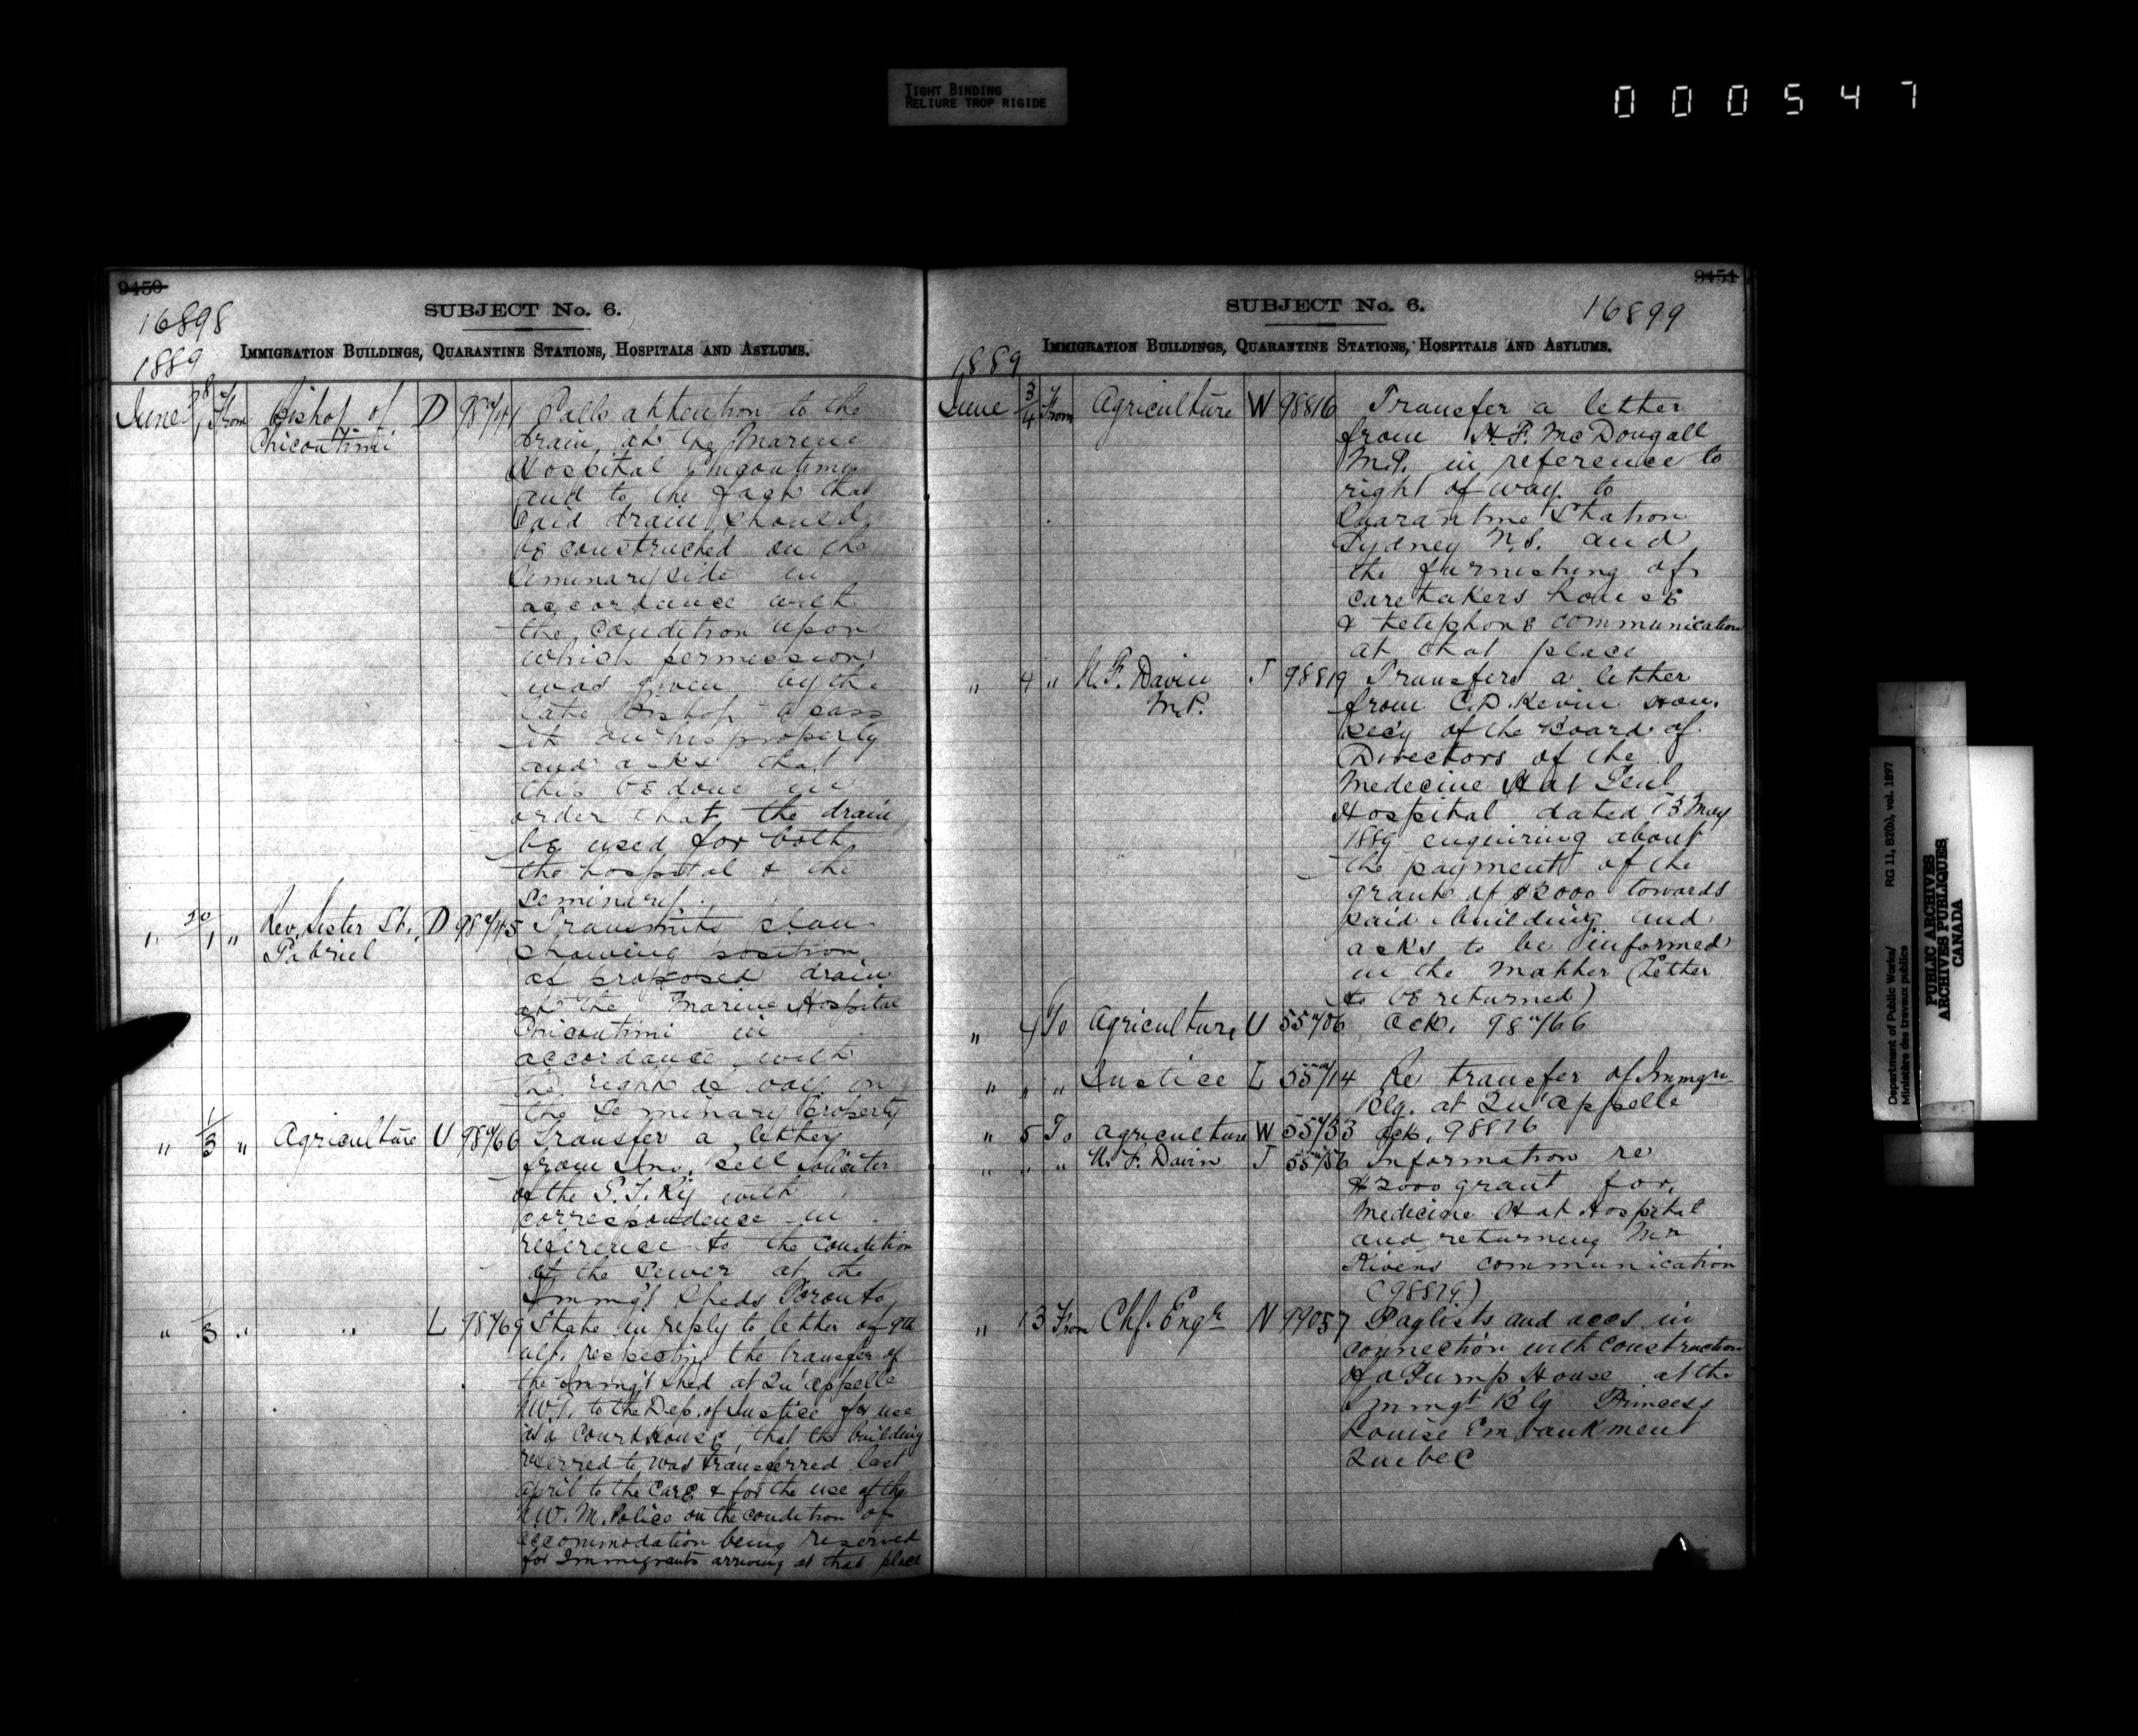 TIGHT BINDING
RELIURE TROP RIGIDE
000547
9450
16898
1889
SUBJECT No. 6.
IMMIGRATION BUILDINGS, QUARANTINE STATIONS, HOSPITALS AND ASYLUMS.
June From Bishop of D Calls attention to the
Chicoutimi drain at the Marine
Hospital Chicoutimi
and to the fact that
said drain should
be constructed on the
Seminary side in
accordance with
the condition upon
which permission
was given by the
late Bishop to pass
it on his property
and asks that
this be done in
order that the drain
be used for both
the hospital & the
Seminary.
" " Rev. Sister St. D Transmits plan
Gabriel showing position
of proposed drain
at the Marine Hospital
Chicoutimi in
accordance with
the right of way on
the Seminary property
" 1/3 " Agriculture U 98"/66 Transfer a letter
from Jno. Bell Soliciter
of the G.T. Ry with
correspondence in
reference to the condition
of the sewer at the
Immgt Sheds Toronto
" 1/3 " " L 98"/69 State in reply to letter of 9th
ult. respecting the transfer of
the Immgt Shed at Qu'appelle
N.W.T. to the Dep. of Justice for use
as a Court House, that the building
referred to was transferred last
April to the care & for the use of the
N.W.M. Police on the condition of
accommodation being reserved
for Immigrants arriving at that place
9451
16899
1889
SUBJECT No. 6.
IMMIGRATION BUILDINGS, QUARANTINE STATIONS, HOSPITALS AND ASYLUMS.
June 3/4 From Agriculture W 98816 Transfer a letter
from H.F. McDougall
M.P. in reference to
right of way to
Quarantine Station
Sydney N.S. and
the furnishing of
caretakers house
& telephone communication
at that place
" 4 " N.F. Davin J 98819 Transfers a letter
M.P. from C.D. Hon.
Secy of the Board of
Directors of the
Medecine Hat Genl
Hospital dated 13 May
1889 enquiring about
the payment of the
grant of $2000 towards
said building and
asks to be informed
in the matter (Letter
to be returned)
" 4 To Agriculture U 55"/06 Ack. 98"/66
" " " Justice L 55"/14 Re transfer of Immgn
Blg. at Qu'appelle
" 5 To Agriculture W 55"/33 Ack. 98816
" " " N.F. Davin J 55"/56 Information re
$2000 grant for
Medecine Hat Hospital
and returning Mr
communication
(98819)
" 13 From Chf. Engr N 99057 Paylists and accs. in
connection with construction
of a Pump House at the
Immgt Blg Princess
Louise Embankment
Quebec
Department of Public Works/ RG 11, B2(b), vol. 1897
Ministère des travaux publics
PUBLIC ARCHIVES
ARCHIVES PUBLIQUES
CANADA